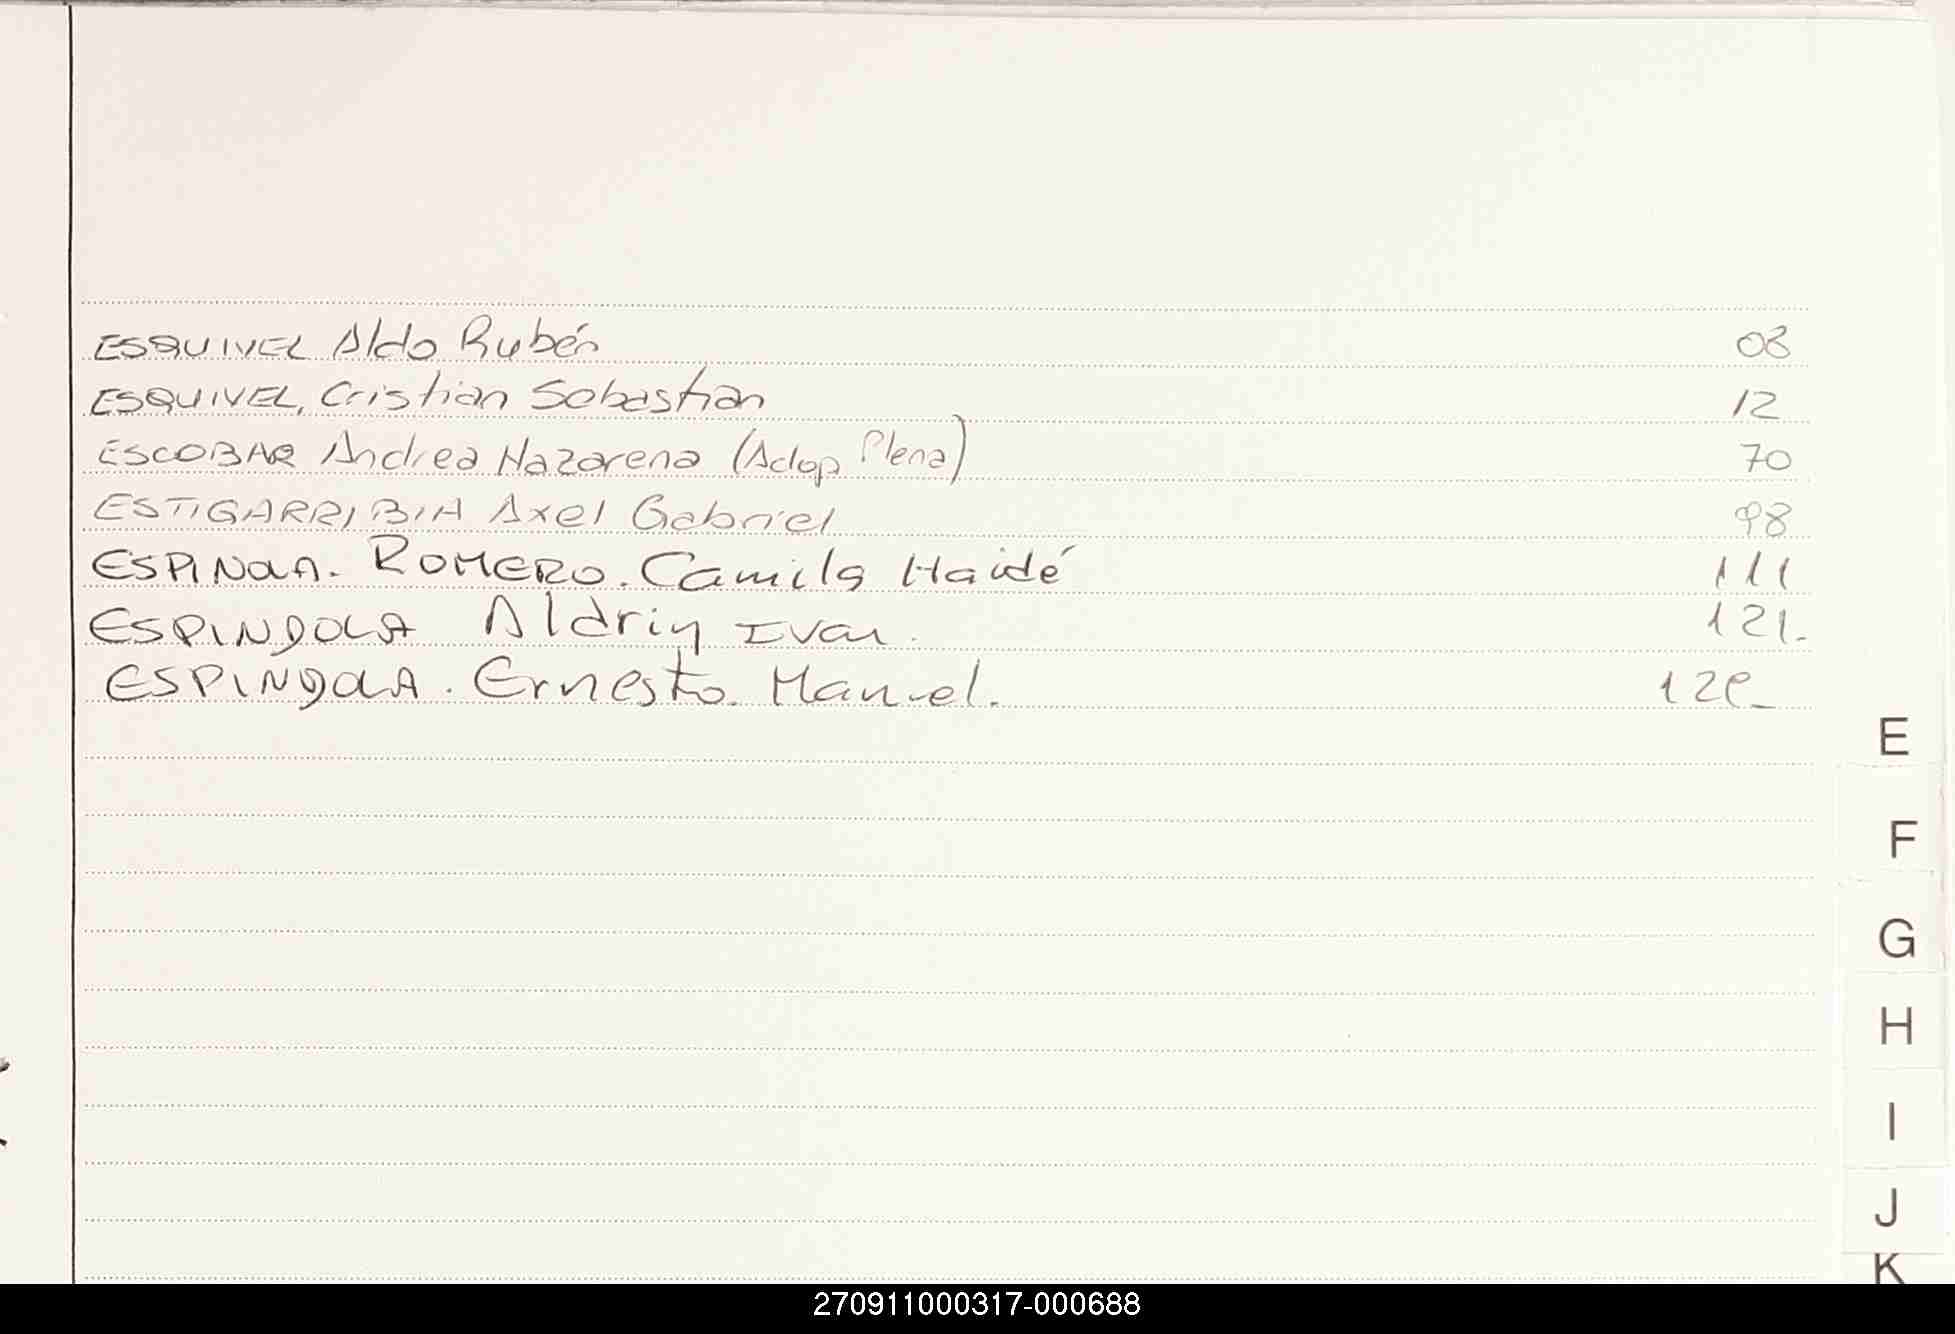 ESQUIVEL Aldo Rubén 08
ESQUIVEL, Cristian Sebastian 12
ESCOBAR Andrea Nazarena (Adop Plena) 70
ESTIGARRIBIA Axel Gabriel 98
ESPINOLA. ROMERO. Camila Haidé 111
ESPINDOLA Aldrin Ivan. 121.
ESPINDOLA. Ernesto. Manuel.
E
F
G
H
I
J
K
270911000317-000688